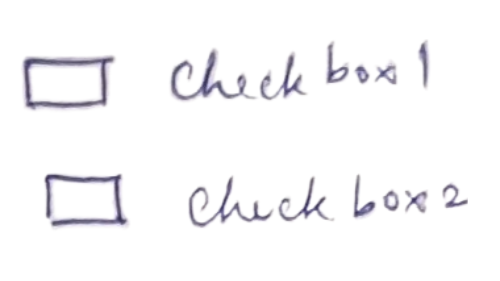 Check box 1
Check box 2